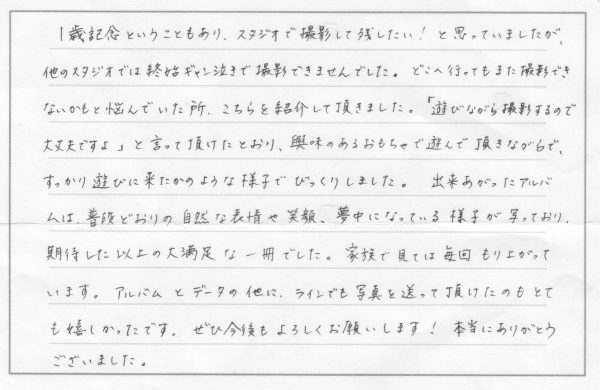 1歳記念ということもあり、スタジオで撮影して残したい！と思っていましたが、
他のスタジオでは終始ギャン泣きで撮影できませんでした。どこへ行ってもまた撮影でき
ないかもと悩んでいた所、こちらを紹介して頂きました。「遊びながら撮影するので
大丈夫ですよ」と言って頂けたとおり、興味のあるおもちゃで遊んで頂きながらで、
すっかり遊びに来たかのような様子でびっくりしました。 出来あがったアルバ
ムは、普段どおりの自然な表情や笑顔、夢中になっている様子が写っており、
期待した以上の大満足な一冊でした。家族で見ては毎回もり上がって
います。アルバムとデータの他に、ラインでも写真を送って頂けたのもとて
も嬉しかったです。ぜひ今後もよろしくお願いします！本当にありがとう
ございました。